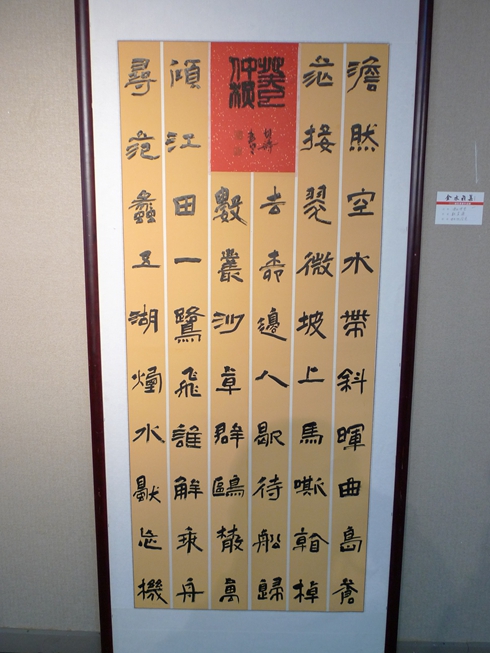 澹然空水帶斜暉曲島蒼
茫接翠微坡上馬嘶看棹
癸巳
仲秋
去柳邊人歇待船歸
數叢沙草群鷗散萬
頃江田一鷺飛誰解乘舟
尋范蠡五湖煙水獨忘機